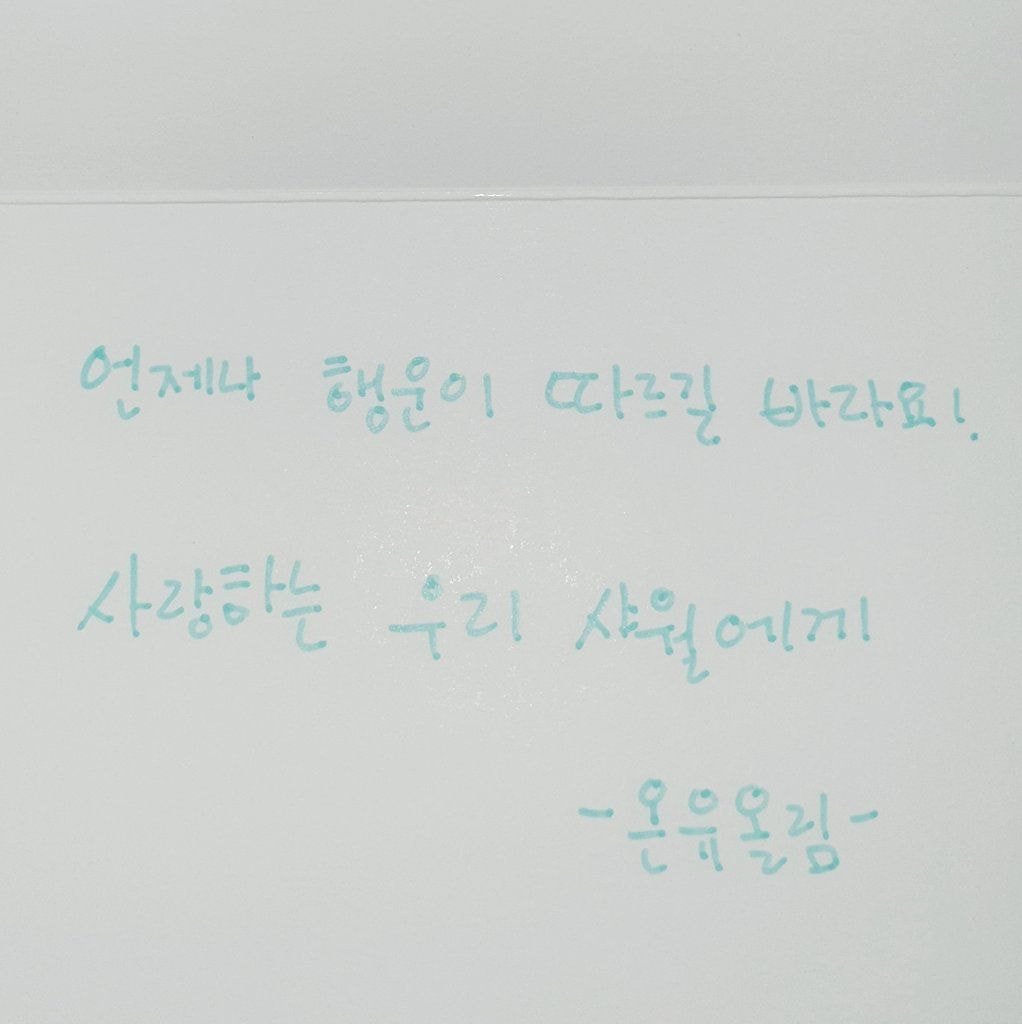 언제나 행운이 따르길 바라요!
사랑하는 우리 샤월에게
-온유올림-